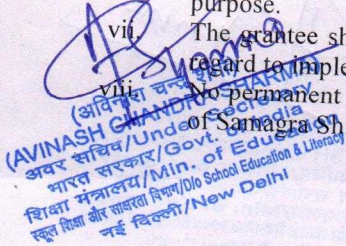 purpose.
vii. The grantee sh
regard to imple
viii. No permanent
of Samagra Sh
(अविनाश चन्द्र शर्मा)
(AVINASH CHANDRA SHARMA)
अवर सचिव/Under Secretary
भारत सरकार/Govt. of India
शिक्षा मंत्रालय/Min. of Education
स्कूल शिक्षा और साक्षरता विभाग/D/o School Education & Literacy
नई दिल्ली/New Delhi